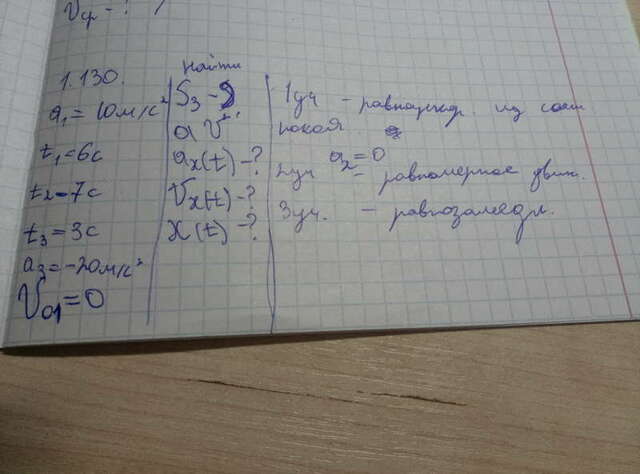 Vср - ?
1.130.
a₁ = 10 м/с²
t₁ = 6с
t₂ = 7с
t₃ = 3с
a₃ = -20м/с²
V₀₁ = 0
Найти
S₃ - ?
ax(t) - ?
Vx(t) - ?
X(t) - ?
1уч - равноускор. из сост
покоя.
2уч a₂ = 0 - равномерное движ.
3уч. - равнозамедл.